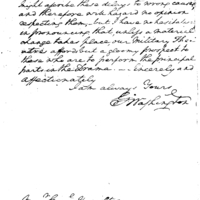 might ascribe these delays to wrong causes
and therefore will hazard no opinion
respecting them, but I have no hesitation
in pronouncing that, unless a material
change takes place, our Military The-
atre affords but a gloomy prospect to
those who are to perform the principal
parts in the Drama. — Sincerely and
affectionately
I am always Yours
G Washington